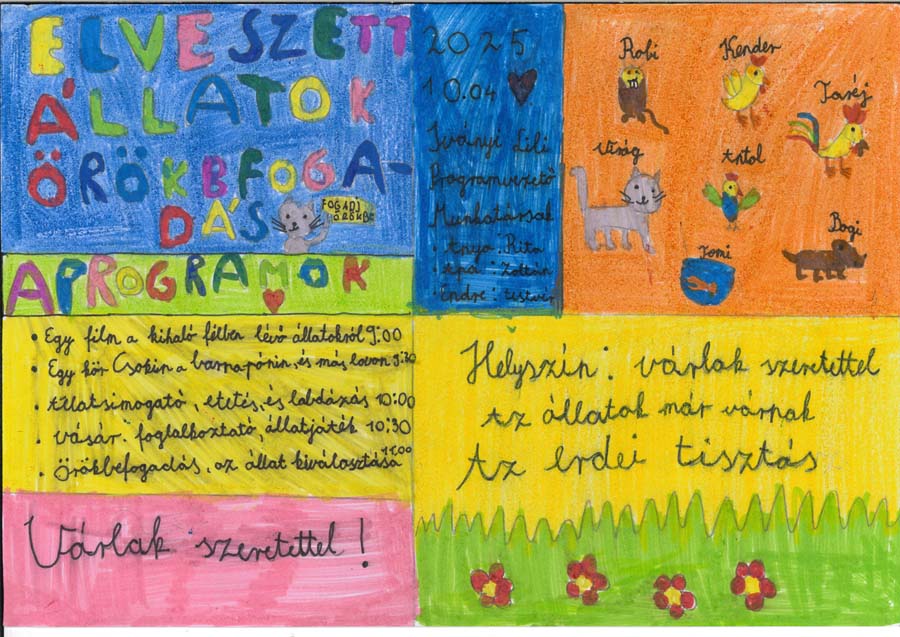 ELVESZETT
ÁLLATOK
ÖRÖKBFOGA-
DÁS
FOGADJ
ÖRÖKBE
APROGRAMOK
• Egy film a kihaló félben lévő állatokról 9:00
• Egy kör Csokin a barnapónin, és más lovon 9:30
• Állatsimogató, etetés, és labdázás 10:00
• Vásár: foglalkoztató, állatjáték 10:30
• Örökbefogadás, az állat kiválasztása 11:00
Várlak szeretettel!
2025
10.04
Iványi Lili
Programvezető
Munkatársak
• Anya: Rita
• Apa: Zoltán
• Endre: testvér
Robi
Kender
Taréj
Virág
Antal
Tomi
Bogi
Helyszín: várlak szeretettel
Az állatok már várnak
Az erdei tisztás